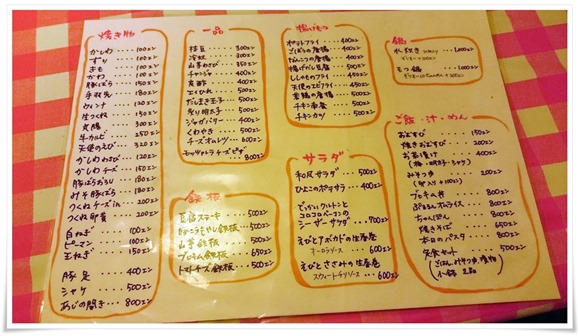 焼き物
かしわ・・・・100エン
ずり・・・・100エン
きも・・・・100エン
かわ・・・・100エン
豚ばら・・・・150エン
手羽先・・・・180エン
ウィンナ・・・・120エン
生つくね・・・150エン
牛カルビ・・・250エン
天使のえび・・・320エン
かしわわさび・・・120エン
かしわチーズ・・・150エン
豚ばらおろし・・・180エン
みそ豚ばら・・・180エン
つくねチーズin・・・200エン
つくね卵黄・・・200エン
白ねぎ・・・100エン
ピーマン・・・100エン
玉ねぎ・・・150エン
豚足・・・400エン
シャケ・・・500エン
あじの開き・・・800エン
一品
枝豆・・・300エン
冷奴・・・300エン
山芋わさび・・・350エン
チャンジャ・・・400エン
だしまき玉子・・・500エン
炙り明太子・・・500エン
ジャガバター・・・400エン
くわやき・・・500エン
チーズオムレツ・・・600エン
モッツァレラチーズピザ
800エン
鉄板
豆腐ステーキ・・・500エン
山芋鉄板・・・500エン
プルコギ鉄板・・・650エン
トマトチーズ鉄板・・・500エン
揚げもの
ポテトフライ・・・400エン
ごぼうの唐揚・・・400エン
なんこつの唐揚・・・400エン
揚げだし豆腐・・・500エン
ししゃもフライ・・・450エン
天使のエビフライ・・・450エン
若鶏の唐揚・・・500エン
チキン南蛮・・・500エン
チキンカツ・・・500エン
サラダ
和風サラダ・・・500エン
ひよこのポテサラ・・・400エン
でっかいクルトンと
コロコロベーコンの
シーザーサラダ・・・700エン
えびとアボカドの生春巻
オーロラソース・・・600エン
えびとささみの生春巻
スウィートチリソース・・・600エン
鍋
水炊き
1,000エン
もつ鍋
1,000エン
ご飯・汁・めん
おむすび・・・150エン
焼きおむすび・・・200エン
お茶漬け・・・400エン
(梅・明太子・シャケ)
みそつゆ・・・200エン
(豚入り+100エン)
プルキム丼・・・800エン
ぷるるんオムライス・・・800エン
ちゃんぽん・・・800エン
焼きそば・・・650エン
本日のパスタ・・・800エン
定食セット・・・500エン
(ごはん・みそつゆ・漬物
小鉢 2品)